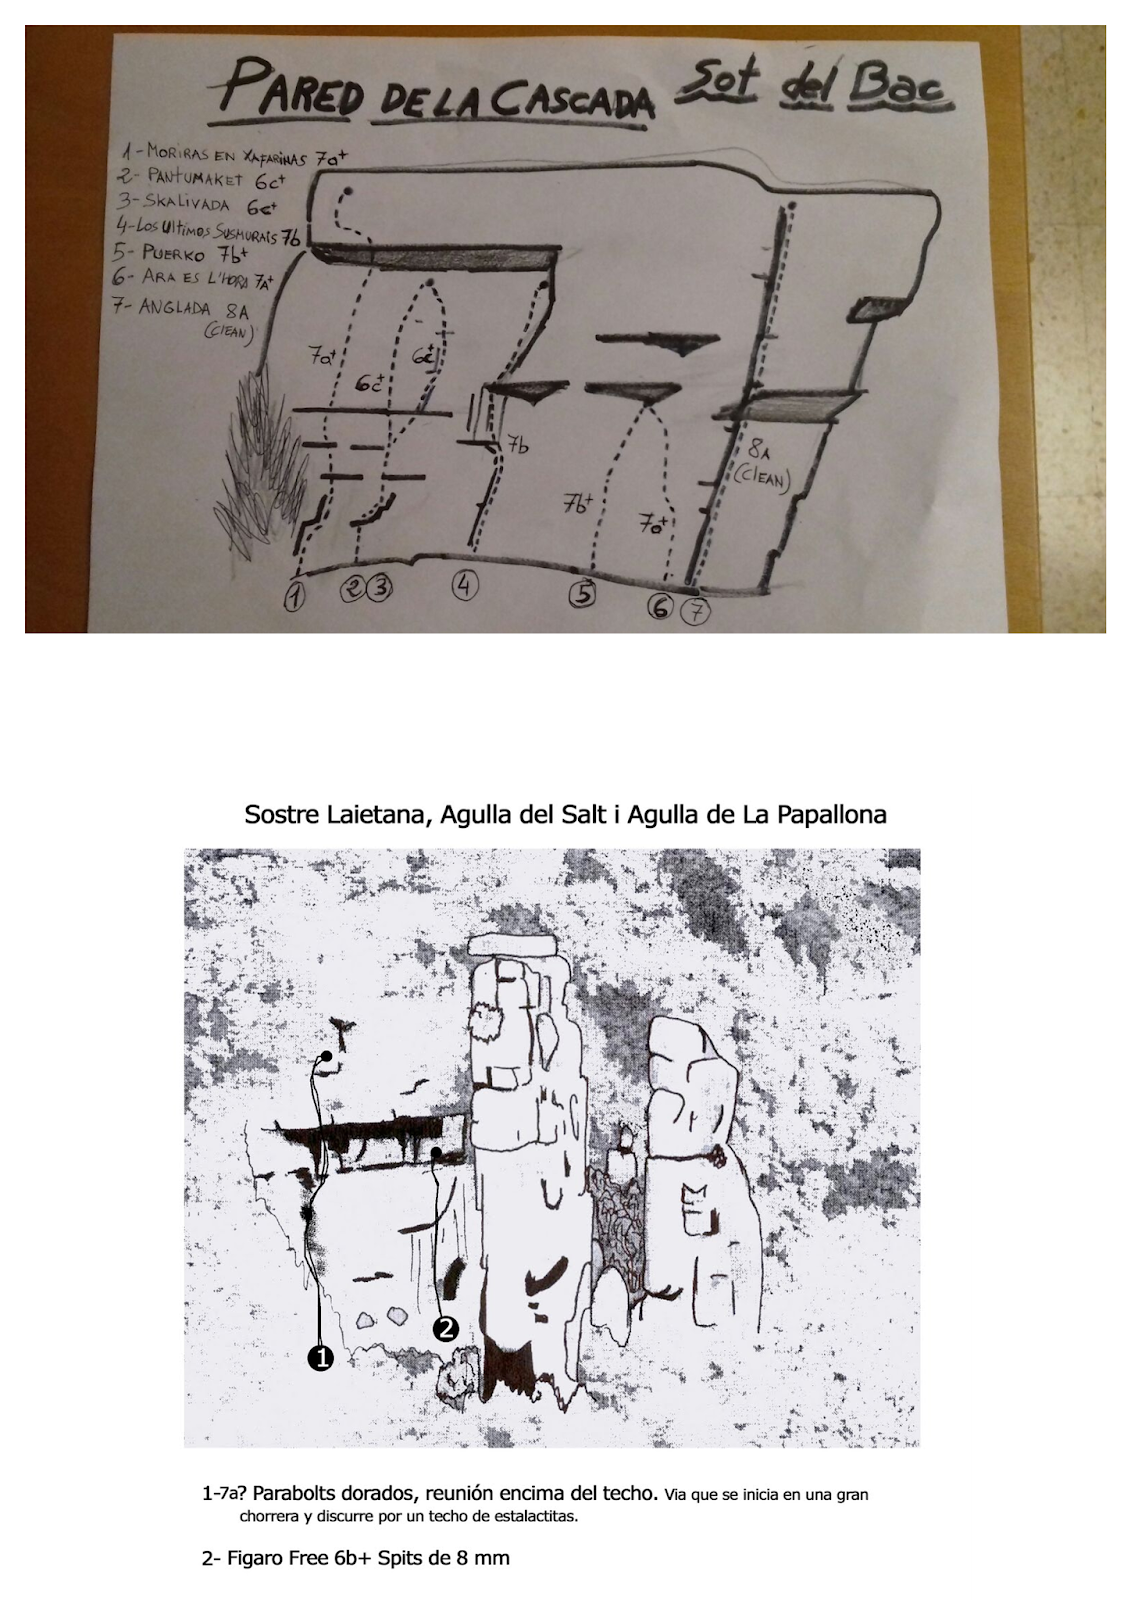 PARED DE LA CASCADA Sot del Bac
1-MORIRAS EN XAFARINAS 7a+
2- PANTUMAKET 6c+
3-SKALIVADA 6c+
4-Los Ultimos SUSMURAIS 7b
5- PUERKO 7b+
6- ARA ES L'HORA 7A+
7-ANGLADA 8A
(CLEAN)
7a+
6c+
6c+
7b
8A
(CLEAN)
7b+
7a+
1 2 3 4 5 6 7
Sostre Laietana, Agulla del Salt i Agulla de La Papallona
2
1
1-7a? Parabolts dorados, reunión encima del techo. Via que se inicia en una gran
chorrera y discurre por un techo de estalactitas.
2- Figaro Free 6b+ Spits de 8 mm